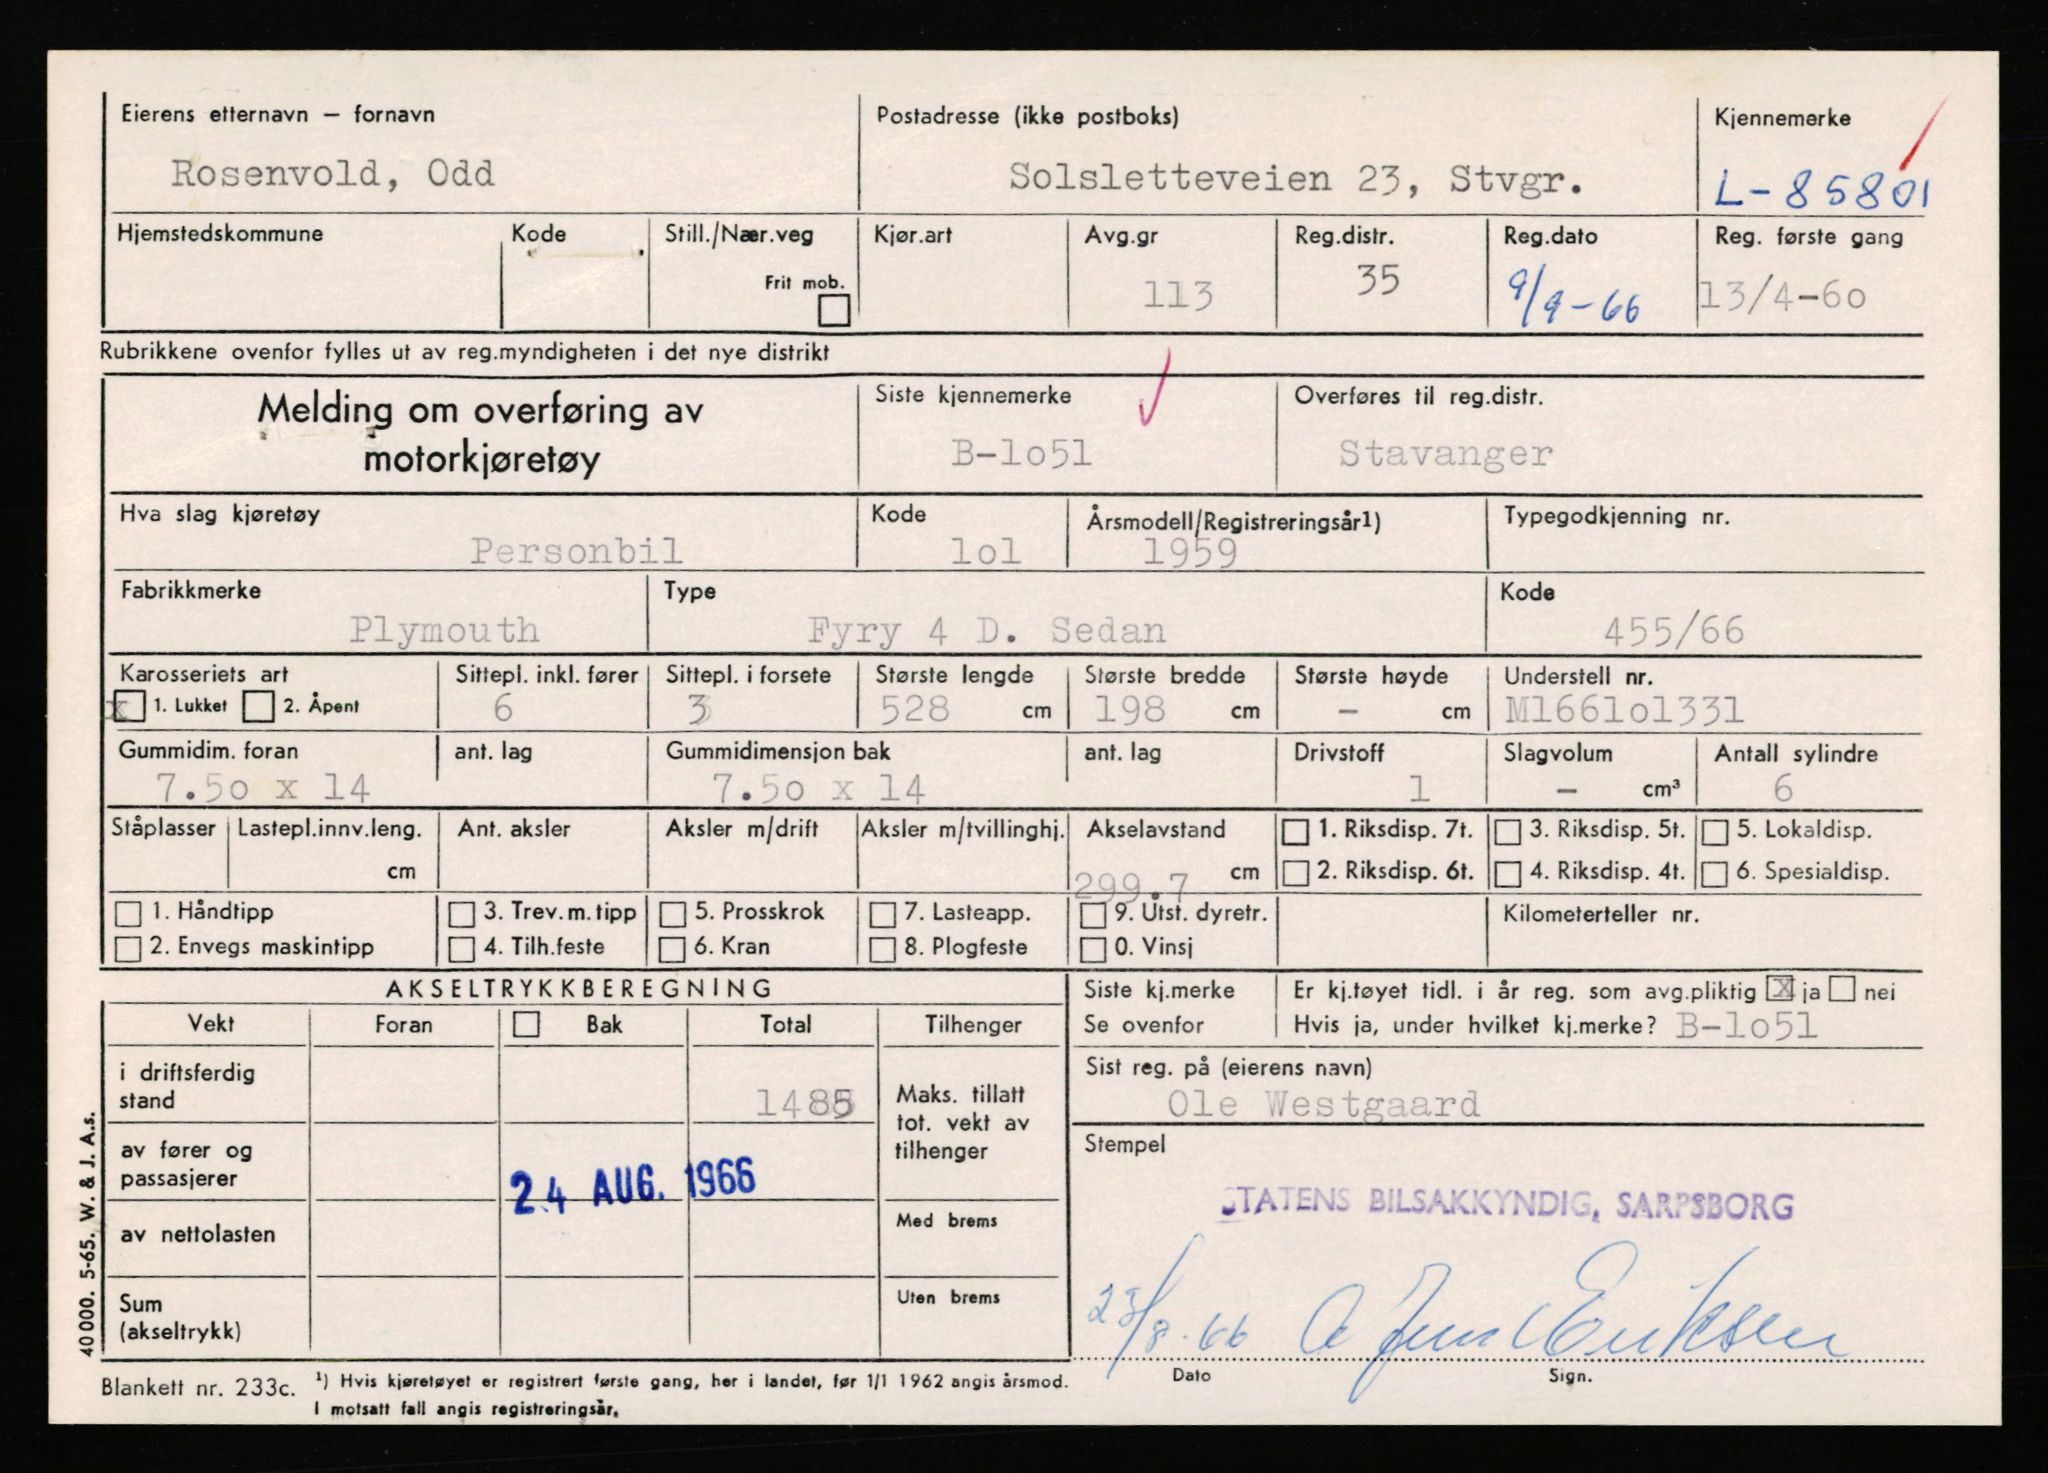 Eierens etternavn – fornavn
Postadresse (ikke postboks)
Kjennemerke
Rosenvold, Odd
Solsletteveien 23, Stvgr.
L-85801
Hjemstedskommune
Kode
Still./Nær.veg
Kjør.art
Avg.gr
Reg.distr.
Reg.dato
Reg. første gang
Frit mob.
113
35
9/9-66
13/4-6o
Rubrikkene ovenfor fylles ut av reg.myndigheten i det nye distrikt
Melding om overføring av
motorkjøretøy
Siste kjennemerke
B-1o51
Overføres til reg.distr.
Stavanger
Hva slag kjøretøy
Kode
Årsmodell/Registreringsår1)
Typegodkjenning nr.
Personbil
1o1
1959
Fabrikkmerke
Type
Kode
Plymouth
Fyry 4 D. Sedan
455/66
Karosseriets art
Sittepl. inkl. fører
Sittepl. i forsete
Største lengde
Største bredde
Største høyde
Understell nr.
x 1. Lukket 2. Åpent
6
3
528 cm
198 cm
- cm
M1661o1331
Gummidim. foran
ant. lag
Gummidimensjon bak
ant. lag
Drivstoff
Slagvolum
Antall sylindre
7.5o x 14
7.5o x 14
1
- cm³
6
Ståplasser
Lastepl.innv.leng.
Ant. aksler
Aksler m/drift
Aksler m/tvillinghj.
Akselavstand
1. Riksdisp. 7t.
3. Riksdisp. 5t.
5. Lokaldisp.
cm
299.7 cm
2. Riksdisp. 6t.
4. Riksdisp. 4t.
6. Spesialdisp.
1. Håndtipp
3. Trev. m. tipp
5. Prosskrok
7. Lasteapp.
9. Utst. dyretr.
Kilometerteller nr.
2. Envegs maskintipp
4. Tilh.feste
6. Kran
8. Plogfeste
0. Vinsj
AKSELTRYKKBEREGNING
Siste kj.merke
Er kj.tøyet tidl. i år reg. som avg.pliktig x ja nei
Vekt
Foran
Bak
Total
Tilhenger
Se ovenfor
Hvis ja, under hvilket kj.merke? B-1o51
i driftsferdig
stand
1485
Maks. tillatt
tot. vekt av
tilhenger
Sist reg. på (eierens navn)
Ole Westgaard
av fører og
passasjerer
24 AUG. 1966
Stempel
STATENS BILSAKKYNDIG, SARPSBORG
av nettolasten
Med brems
Sum
(akseltrykk)
Uten brems
23/8-66
Eriksen
Dato
Sign.
40 000. 5-65. W. & J. A.s.
Blankett nr. 233c.
¹) Hvis kjøretøyet er registrert første gang, her i landet, før 1/1 1962 angis årsmod.
I motsatt fall angis registreringsår.